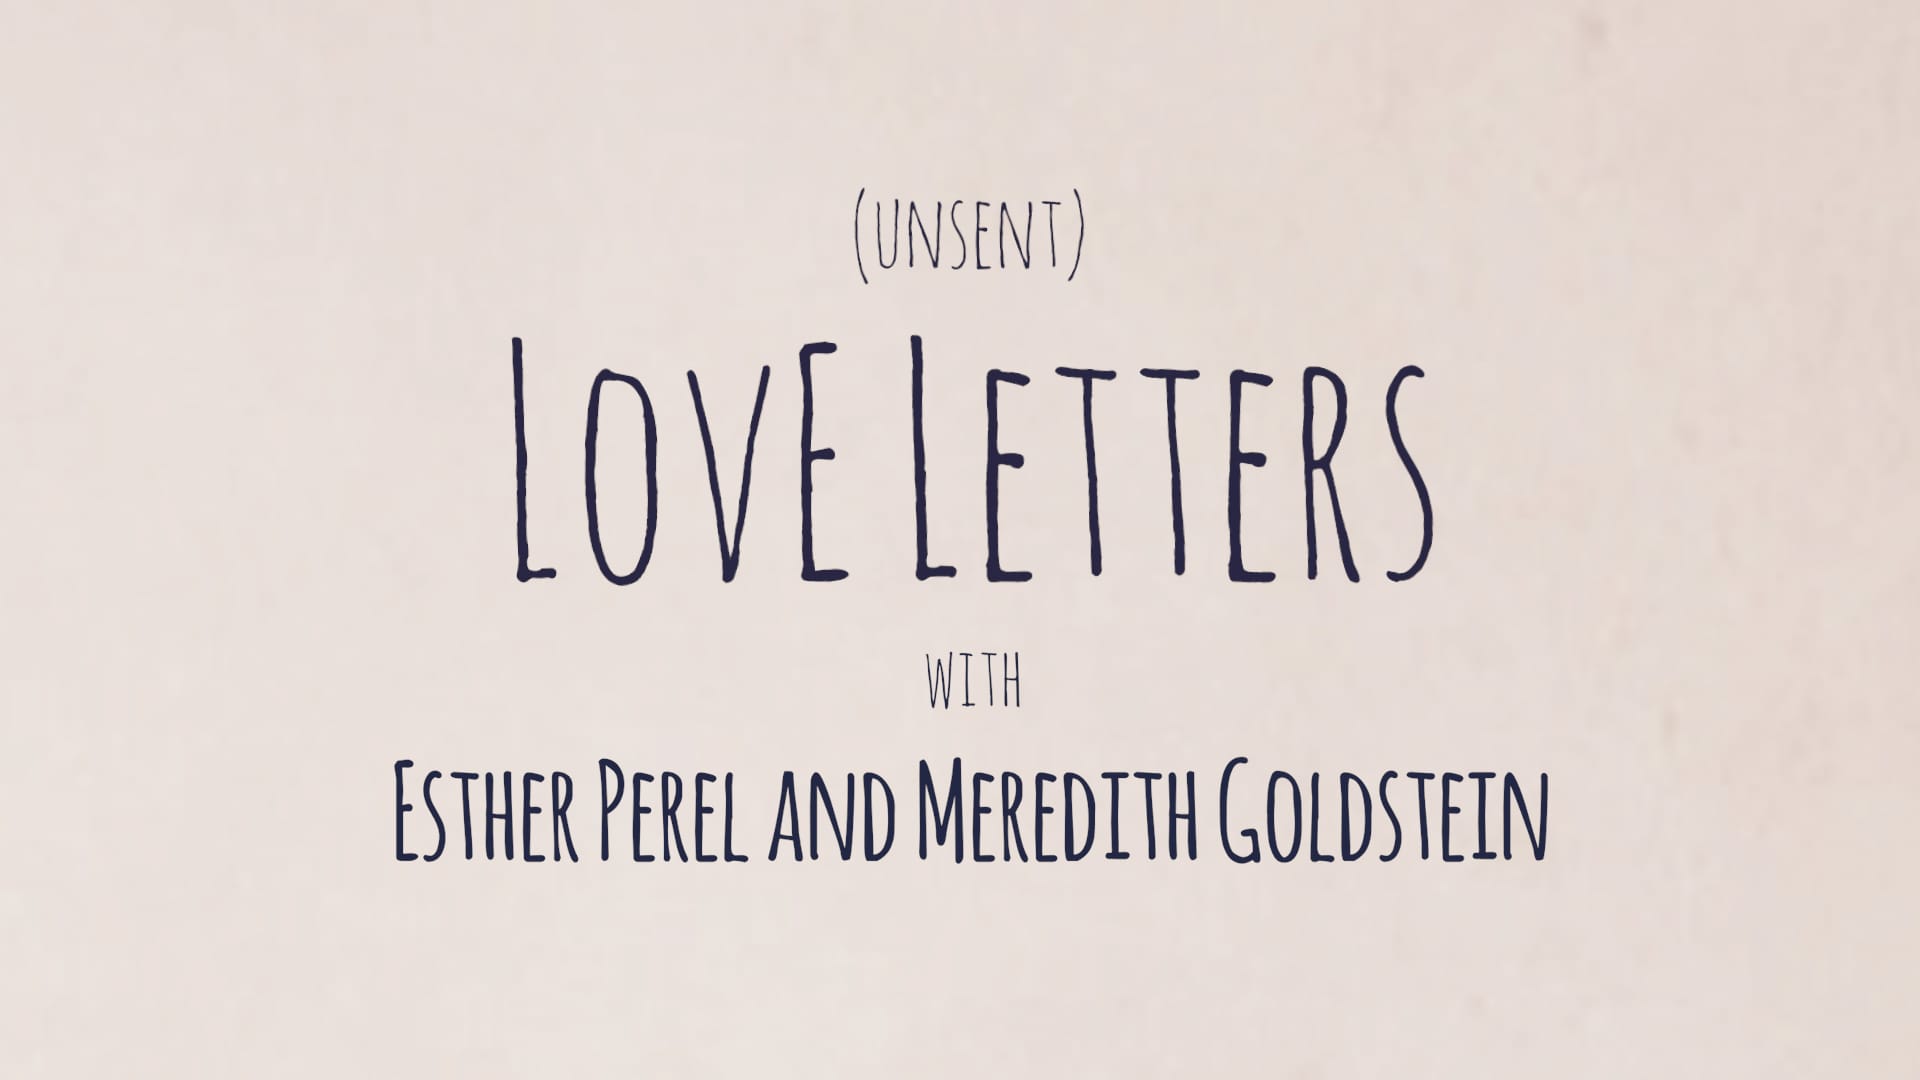 (UNSENT)
LOVE LETTERS
WITH
ESTHER PEREL AND MEREDITH GOLDSTEIN